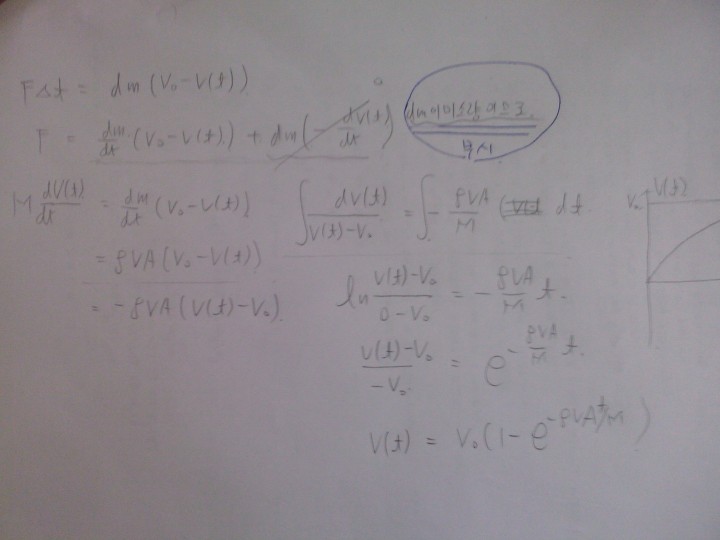 F Δt = dm (V₀ - V(t))
F = dm/dt (V₀ - V(t)) + dm (- dV(t)/dt)
0
dm이 미소량이므로.
무시
M dV(t)/dt = dm/dt (V₀ - V(t))
= ρVA (V₀ - V(t))
= - ρVA (V(t) - V₀).
∫ dV(t)/(V(t) - V₀) = ∫ - ρVA/M dt.
ln (V(t) - V₀)/(0 - V₀) = - ρVA/M t.
(V(t) - V₀)/(-V₀) = e^(- ρVA/M t.)
V(t) = V₀ (1 - e^(-ρVAt/M))
V(t)
V₀